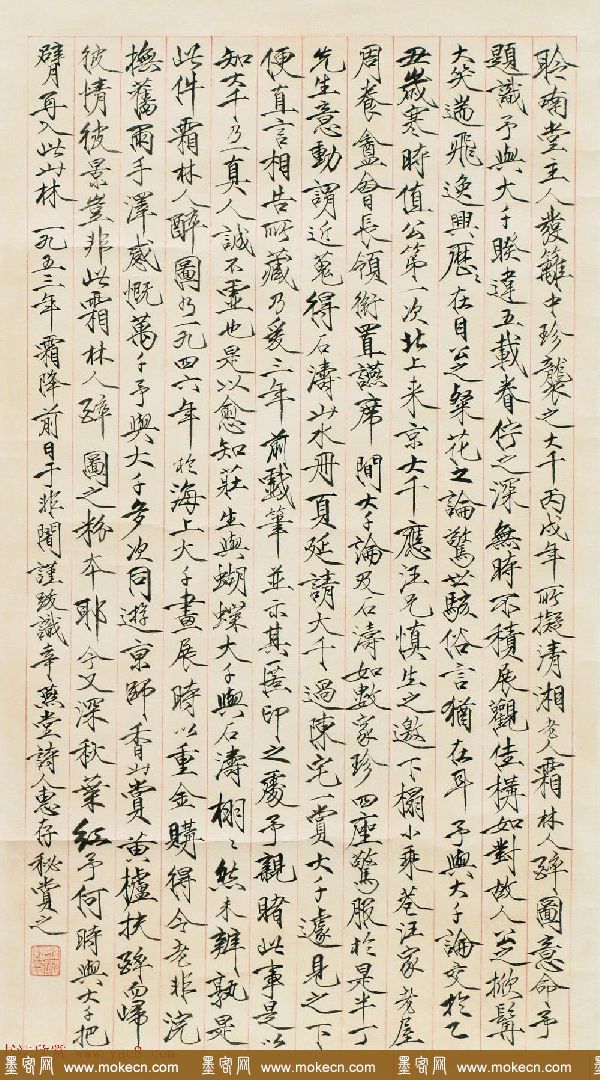 聆南堂主人發籬中珍襲之大千丙戌年所擬清湘老人霜林人醉圖意命予
題識予與大千睽違五載眷佇之深無時不積展觀佳構如對故人公之掀髯
大笑遄飛逸興歷々在目公之粲花之論驚世駭俗言猶在耳予與大千論交於乙
丑歲寒時值公第一次北上來京大千應汪兄慎生之邀下榻小乘巷汪家老屋
周養盦會長領銜置讌席間大千論及石濤如數家珍四座驚服於是半丁
先生意動謂近蒐得石濤山水冊頁延請大千過陳宅一賞大千遽見之下
便直言相告所藏乃爰三年前戲筆並示其匿印之處予親睹此事是以
知大千乃一真人誠不虛也是以愈知莊生與蝴蝶大千與石濤栩々然未辨孰是
此件霜林人醉圖乃一九四六年於海上大千畫展時以重金購得今老非浣
撫舊雨手澤感慨萬千予與大千多次同遊京師々香山賞黃櫨扶醉而歸
彼情彼景豈非此霜林人醉圖之粉本耶今又深秋葉紅予何時與大千把
臂再入此山林一九五三年霜降前日于非闇謹跋識幸熙堂詩人惠存秘賞之
墨客网 www.mokecn.com 墨客网 www.mokecn.com 墨客网 www.mokecn.com